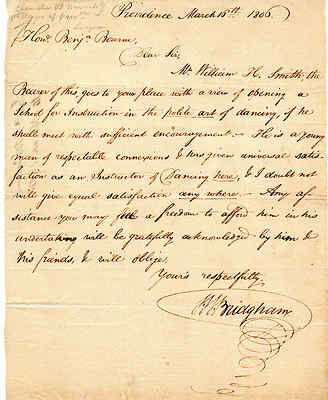 Providence March 15th. 1806.
Honl. Benjn. Bourne,
Dear Sir,
Mr. William H. Smith, the
Bearer of this goes to your place with a view of opening a
School for Instruction in the polite art of dancing, if he
shall meet with sufficient encouragement.– He is a young
man of respectable connexions & has given universal satis-
faction as an Instructor of Dancing here, & I doubt not
will give equal satisfaction any where.– Any as-
sistance you may feel a freedom to afford him in his
undertaking will be gratefully acknowledged by him &
his friends, & will oblige,
Yours respectfully,
Bridgham